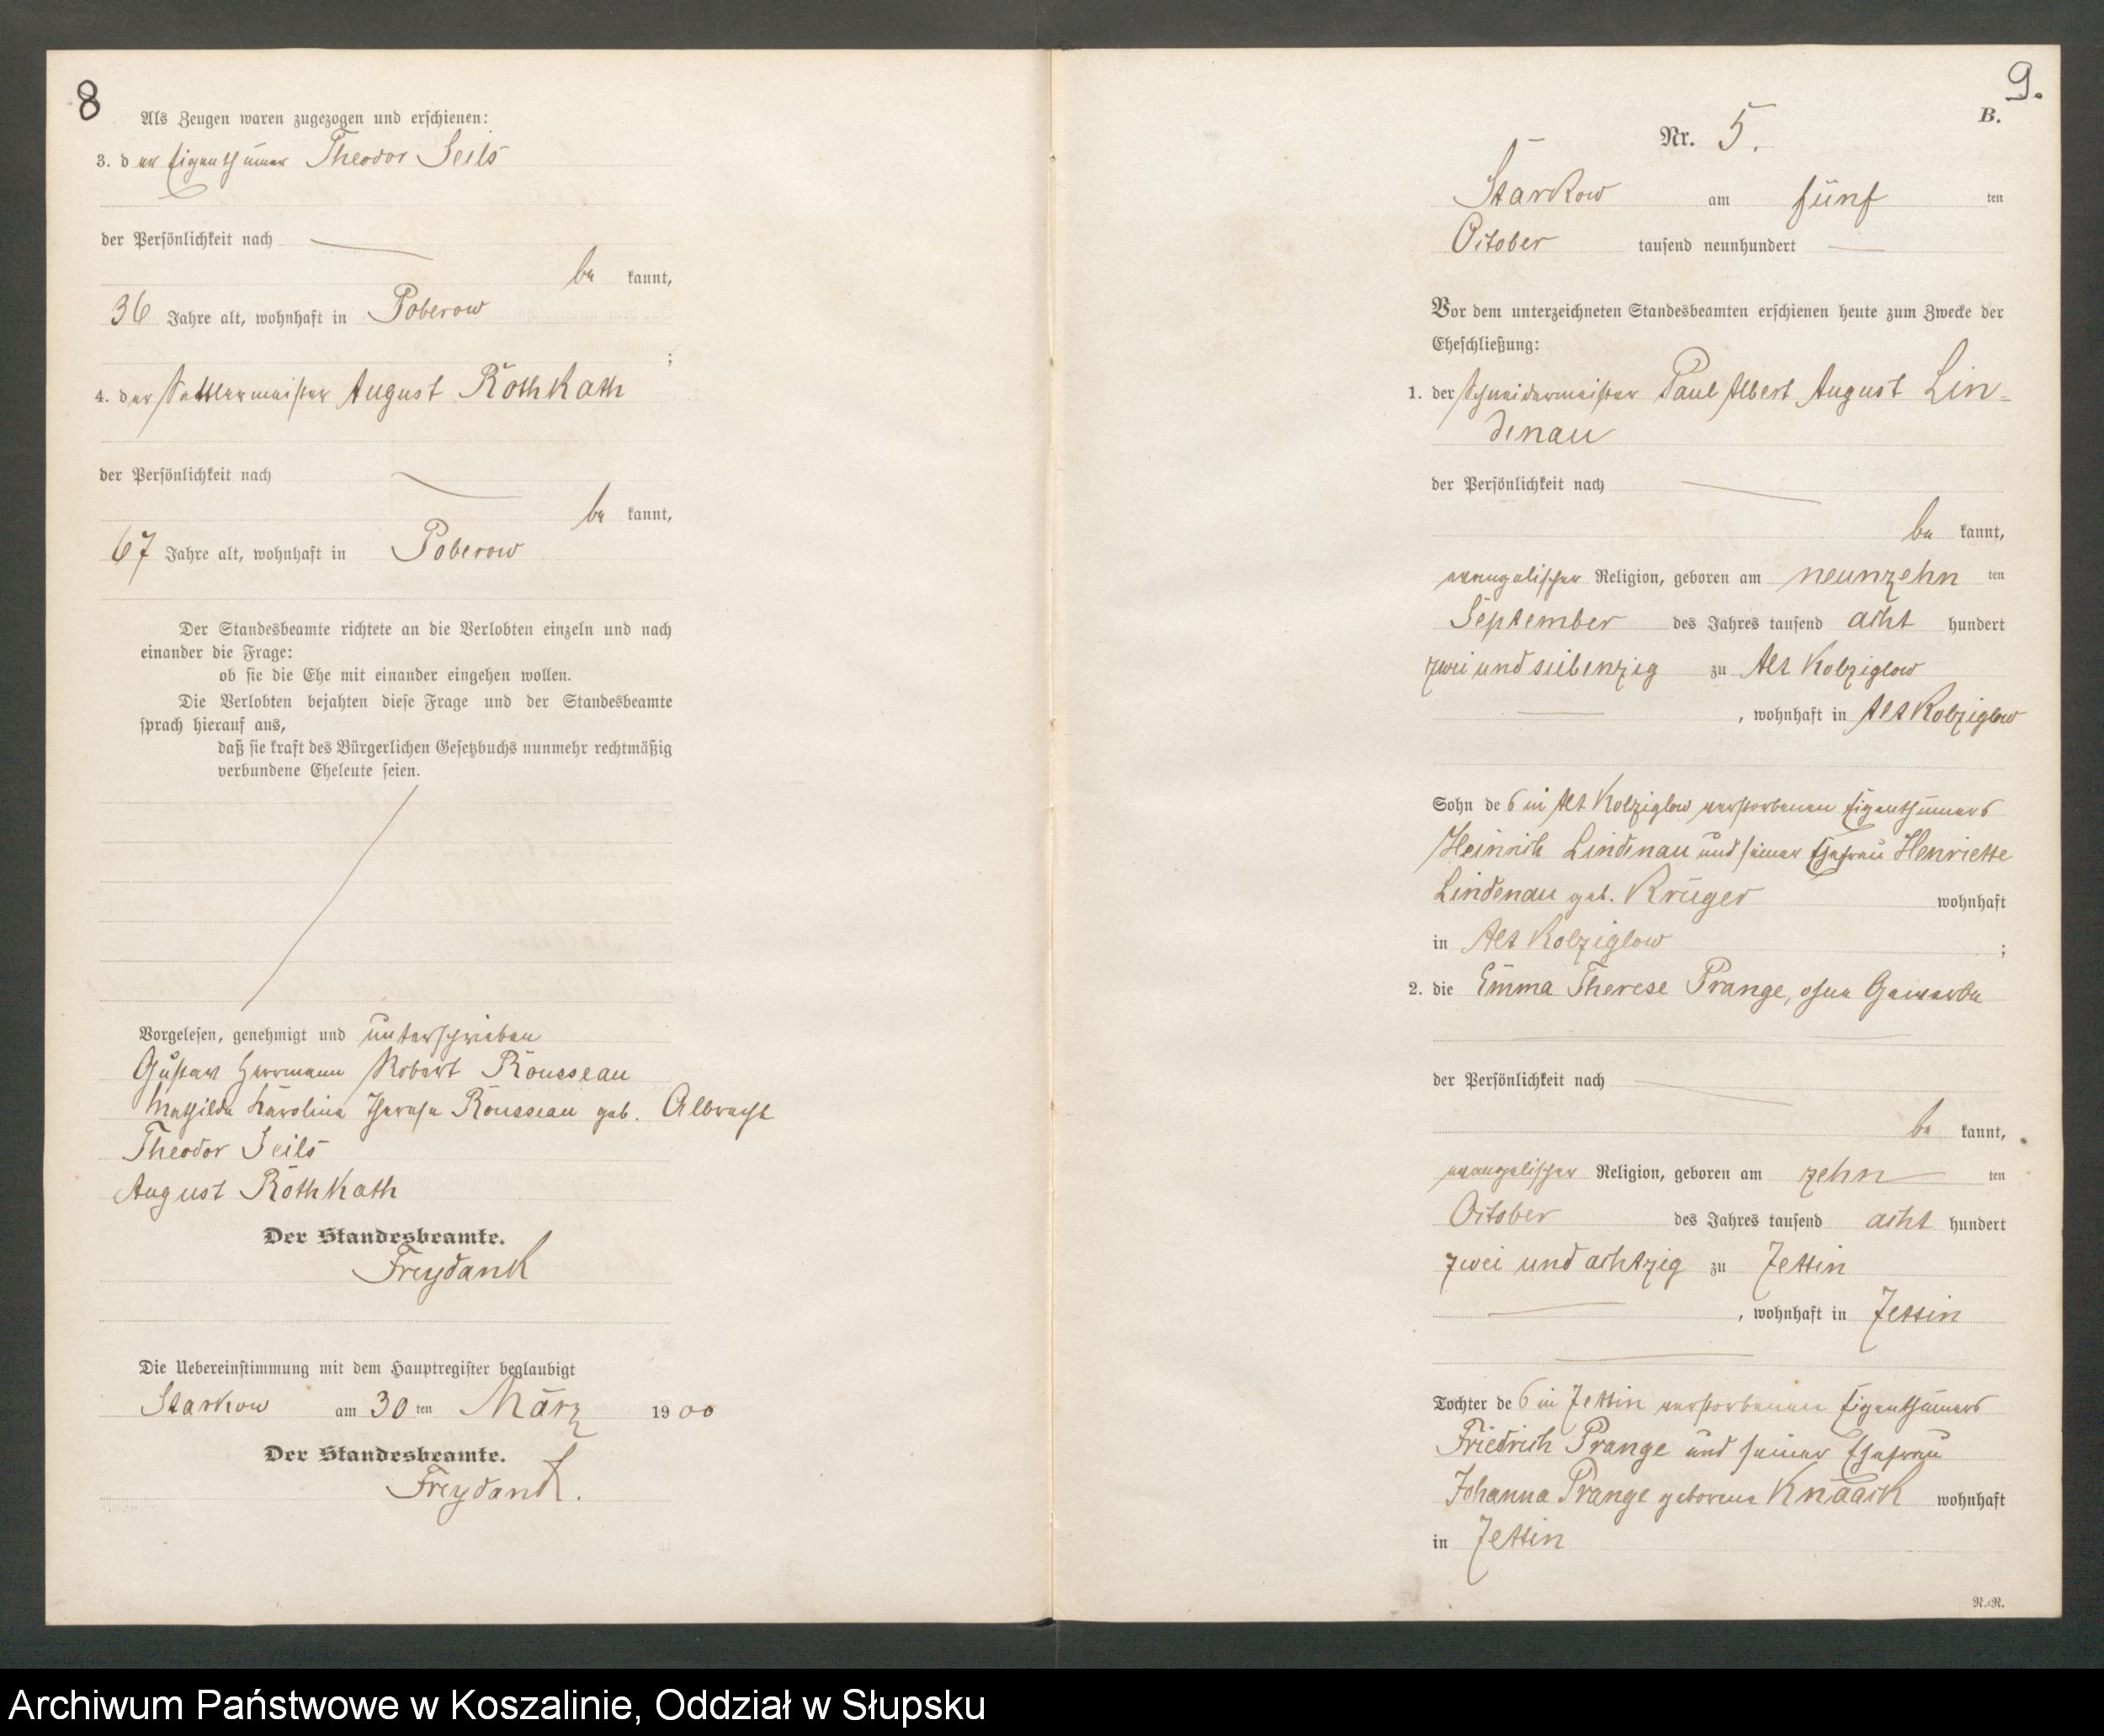 8
Als Zeugen waren zugezogen und erschienen:
3. der Eigenthümer Theodor Seils
der Persönlichkeit nach
be kannt,
36 Jahre alt, wohnhaft in Poberow
;
4. der Sattlermeister August Rothkath
der Persönlichkeit nach
be kannt,
67 Jahre alt, wohnhaft in Poberow
Der Standesbeamte richtete an die Verlobten einzeln und nach
einander die Frage:
ob sie die Ehe mit einander eingehen wollen.
Die Verlobten bejahten diese Frage und der Standesbeamte
sprach hierauf aus,
daß sie kraft des Bürgerlichen Gesetzbuchs nunmehr rechtmäßig
verbundene Eheleute seien.
Vorgelesen, genehmigt und unterschrieben
Gustav Herrmann Robert Rousseau
Mathilde Karoline Therese Rousseau geb. Albrecht
Theodor Seils
August Rothkath
Der Standesbeamte.
Freydank
Die Uebereinstimmung mit dem Hauptregister beglaubigt
Starkow am 30 ten März 1900
Der Standesbeamte.
Freydank.
9.
B.
Nr. 5.
Starkow am fünf ten
October tausend neunhundert
Vor dem unterzeichneten Standesbeamten erschienen heute zum Zwecke der
Eheschließung:
1. der Schneidermeister Paul Albert August Lin-
denau
der Persönlichkeit nach
be kannt,
evangelischer Religion, geboren am neunzehn ten
September des Jahres tausend acht hundert
zwei und siebenzig zu Alt Kolziglow
, wohnhaft in Alt Kolziglow
Sohn des in Alt Kolziglow verstorbenen Eigenthümers
Heinrich Lindenau und seiner Ehefrau Henriette
Lindenau geb. Krüger wohnhaft
in Alt Kolziglow ;
2. die Emma Therese Prange, ohne Gewerbe
der Persönlichkeit nach
be kannt,
evangelischer Religion, geboren am zehn ten
October des Jahres tausend acht hundert
zwei und achtzig zu Zettin
, wohnhaft in Zettin
Tochter des in Zettin verstorbenen Eigenthümers
Friedrich Prange und seiner Ehefrau
Johanna Prange geborene Knaack wohnhaft
in Zettin
N.=R.
Archiwum Państwowe w Koszalinie, Oddział w Słupsku